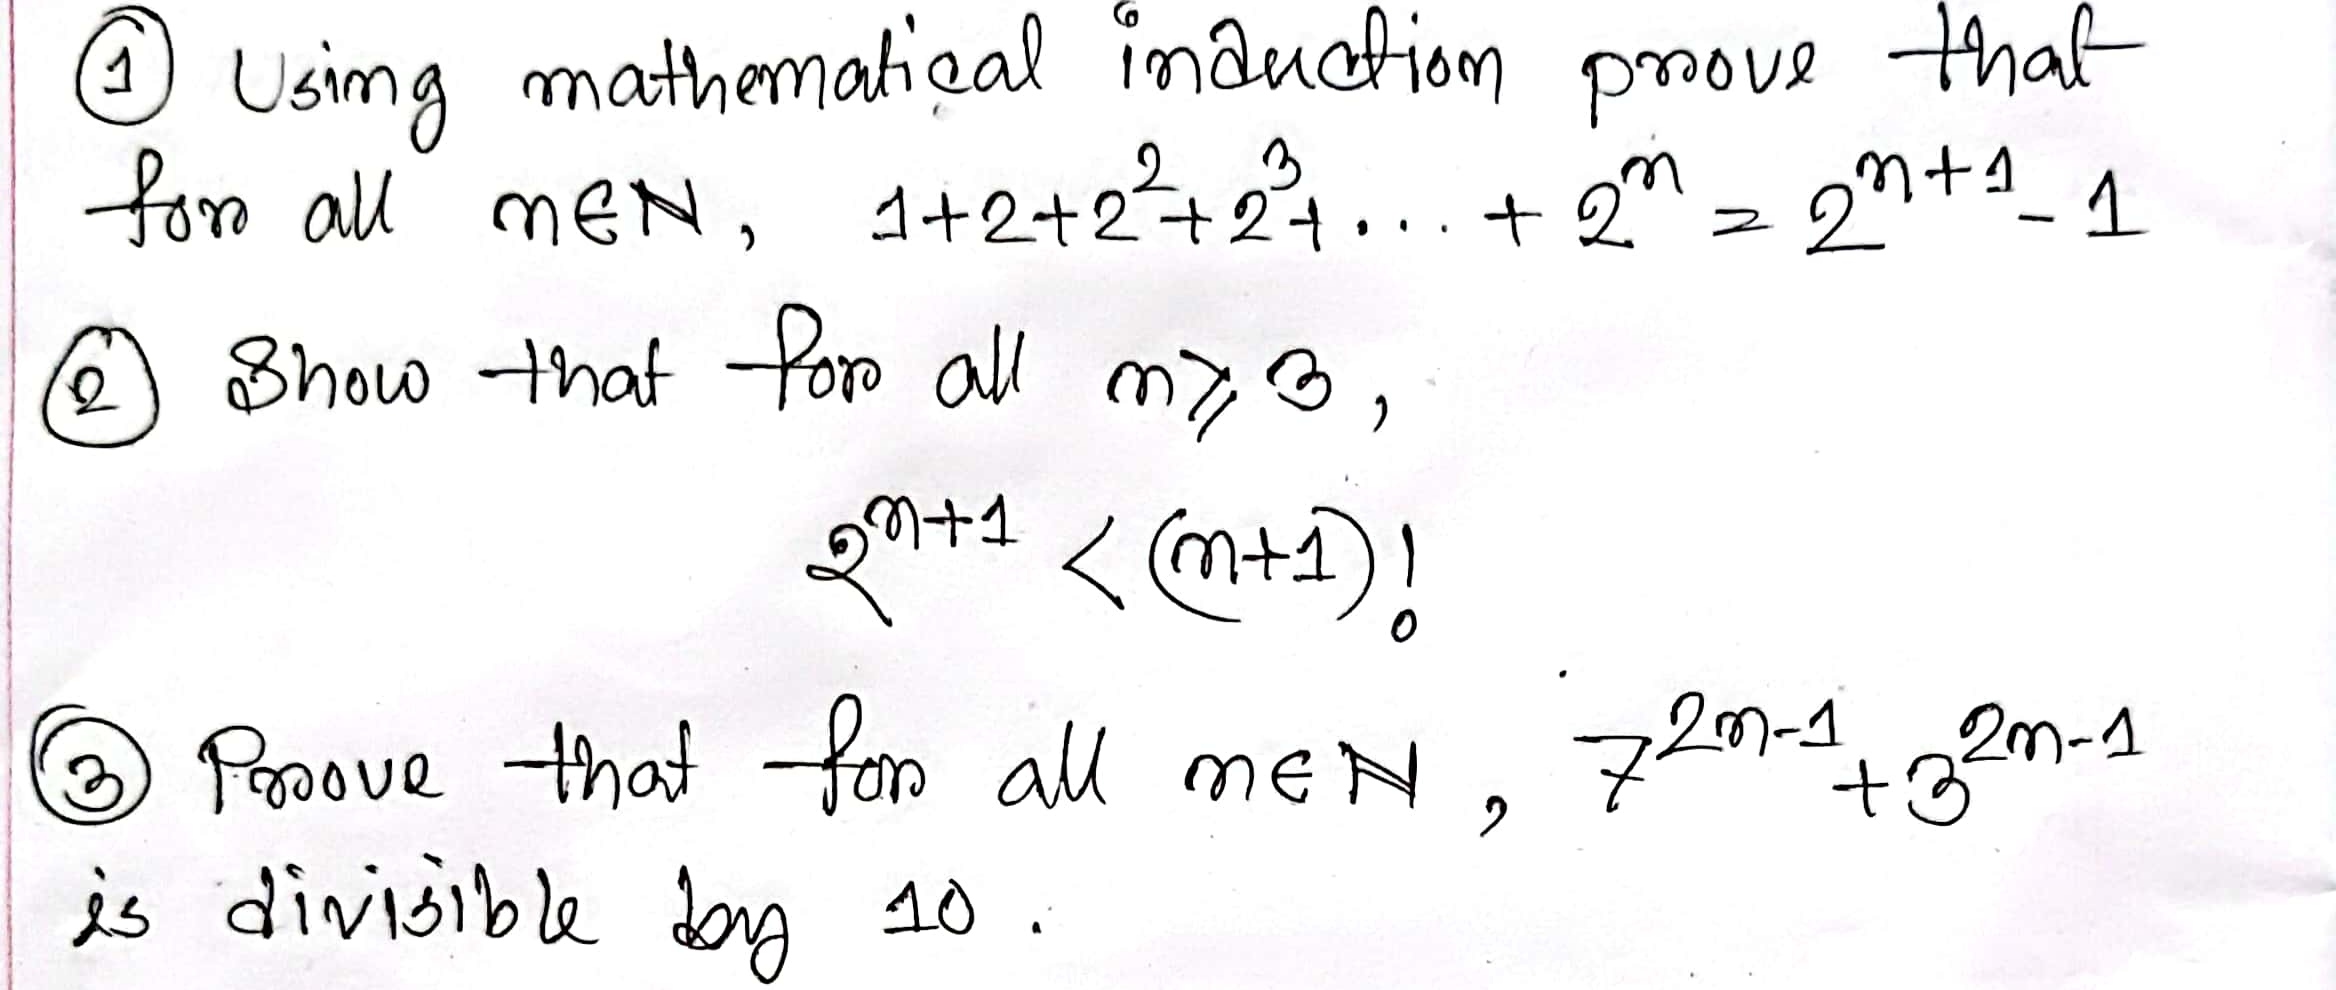 ① Using mathematical induction prove that
for all n∈N, 1+2+2²+2³+...+2ⁿ = 2ⁿ⁺¹-1
② Show that for all n⩾3,
2ⁿ⁺¹ < (n+1)!
③ Prove that for all n∈N, 7²ⁿ⁻¹+3²ⁿ⁻¹
is divisible by 10.